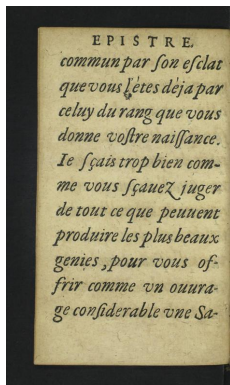 EPISTRE.
commun par ſon eſclat
que vous l'étes déja par
celuy du rang que vous
donne voſtre naiſſance.
Ie ſçais trop bien com-
me vous ſçauez juger
de tout ce que peuuent
produire les plus beaux
genies, pour vous of-
frir comme vn ouura-
ge conſiderable vne Sa-